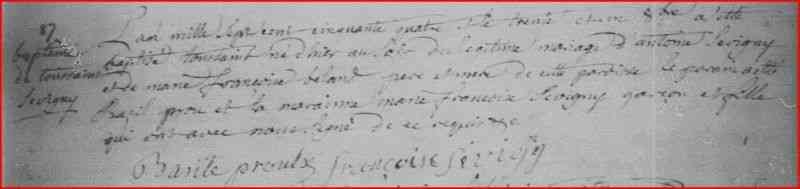 87
baptême
de toussaint
Sevigny
L'an mille sept cent cinquante quatre et le trente et un 8bre a été
baptisé toussaint né d'hier au soir du legitime mariage d'antoine Sevigny
et de marie françoise beland pere et mere de cette paroisse le parain a été
bazil prou et la maraine marie françoise Sevigny garçon et fille
qui ont avec nous signé de ce requis
Basile proulx françoise Sévigny